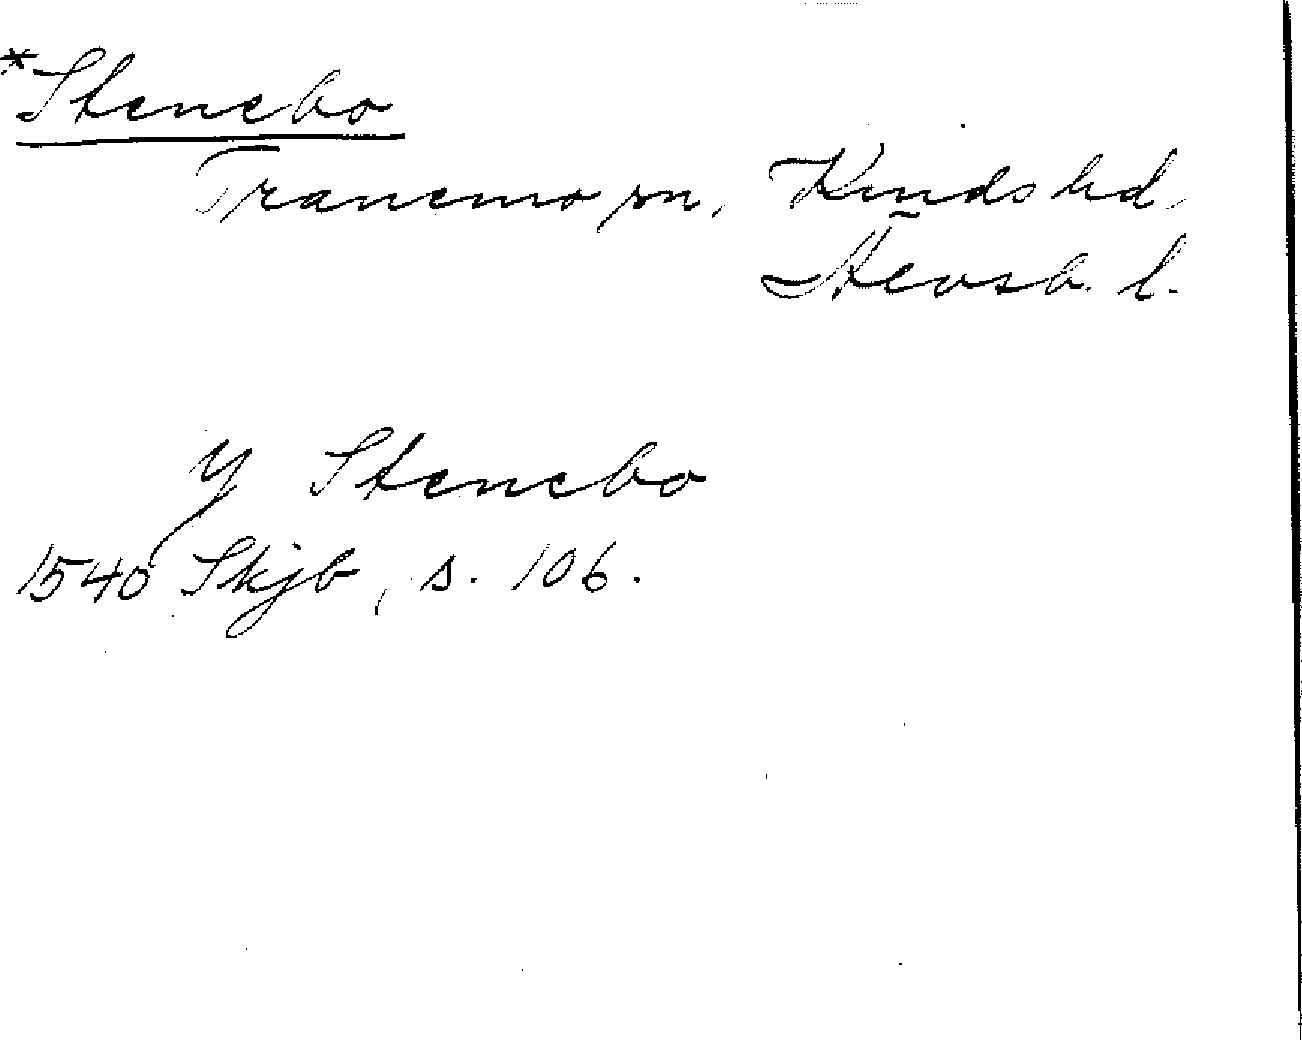 *Stenebo
Tranemo sn, Kinds hd,
Älvsb. l.
y Stenebo
1540 Skjb, s. 106.